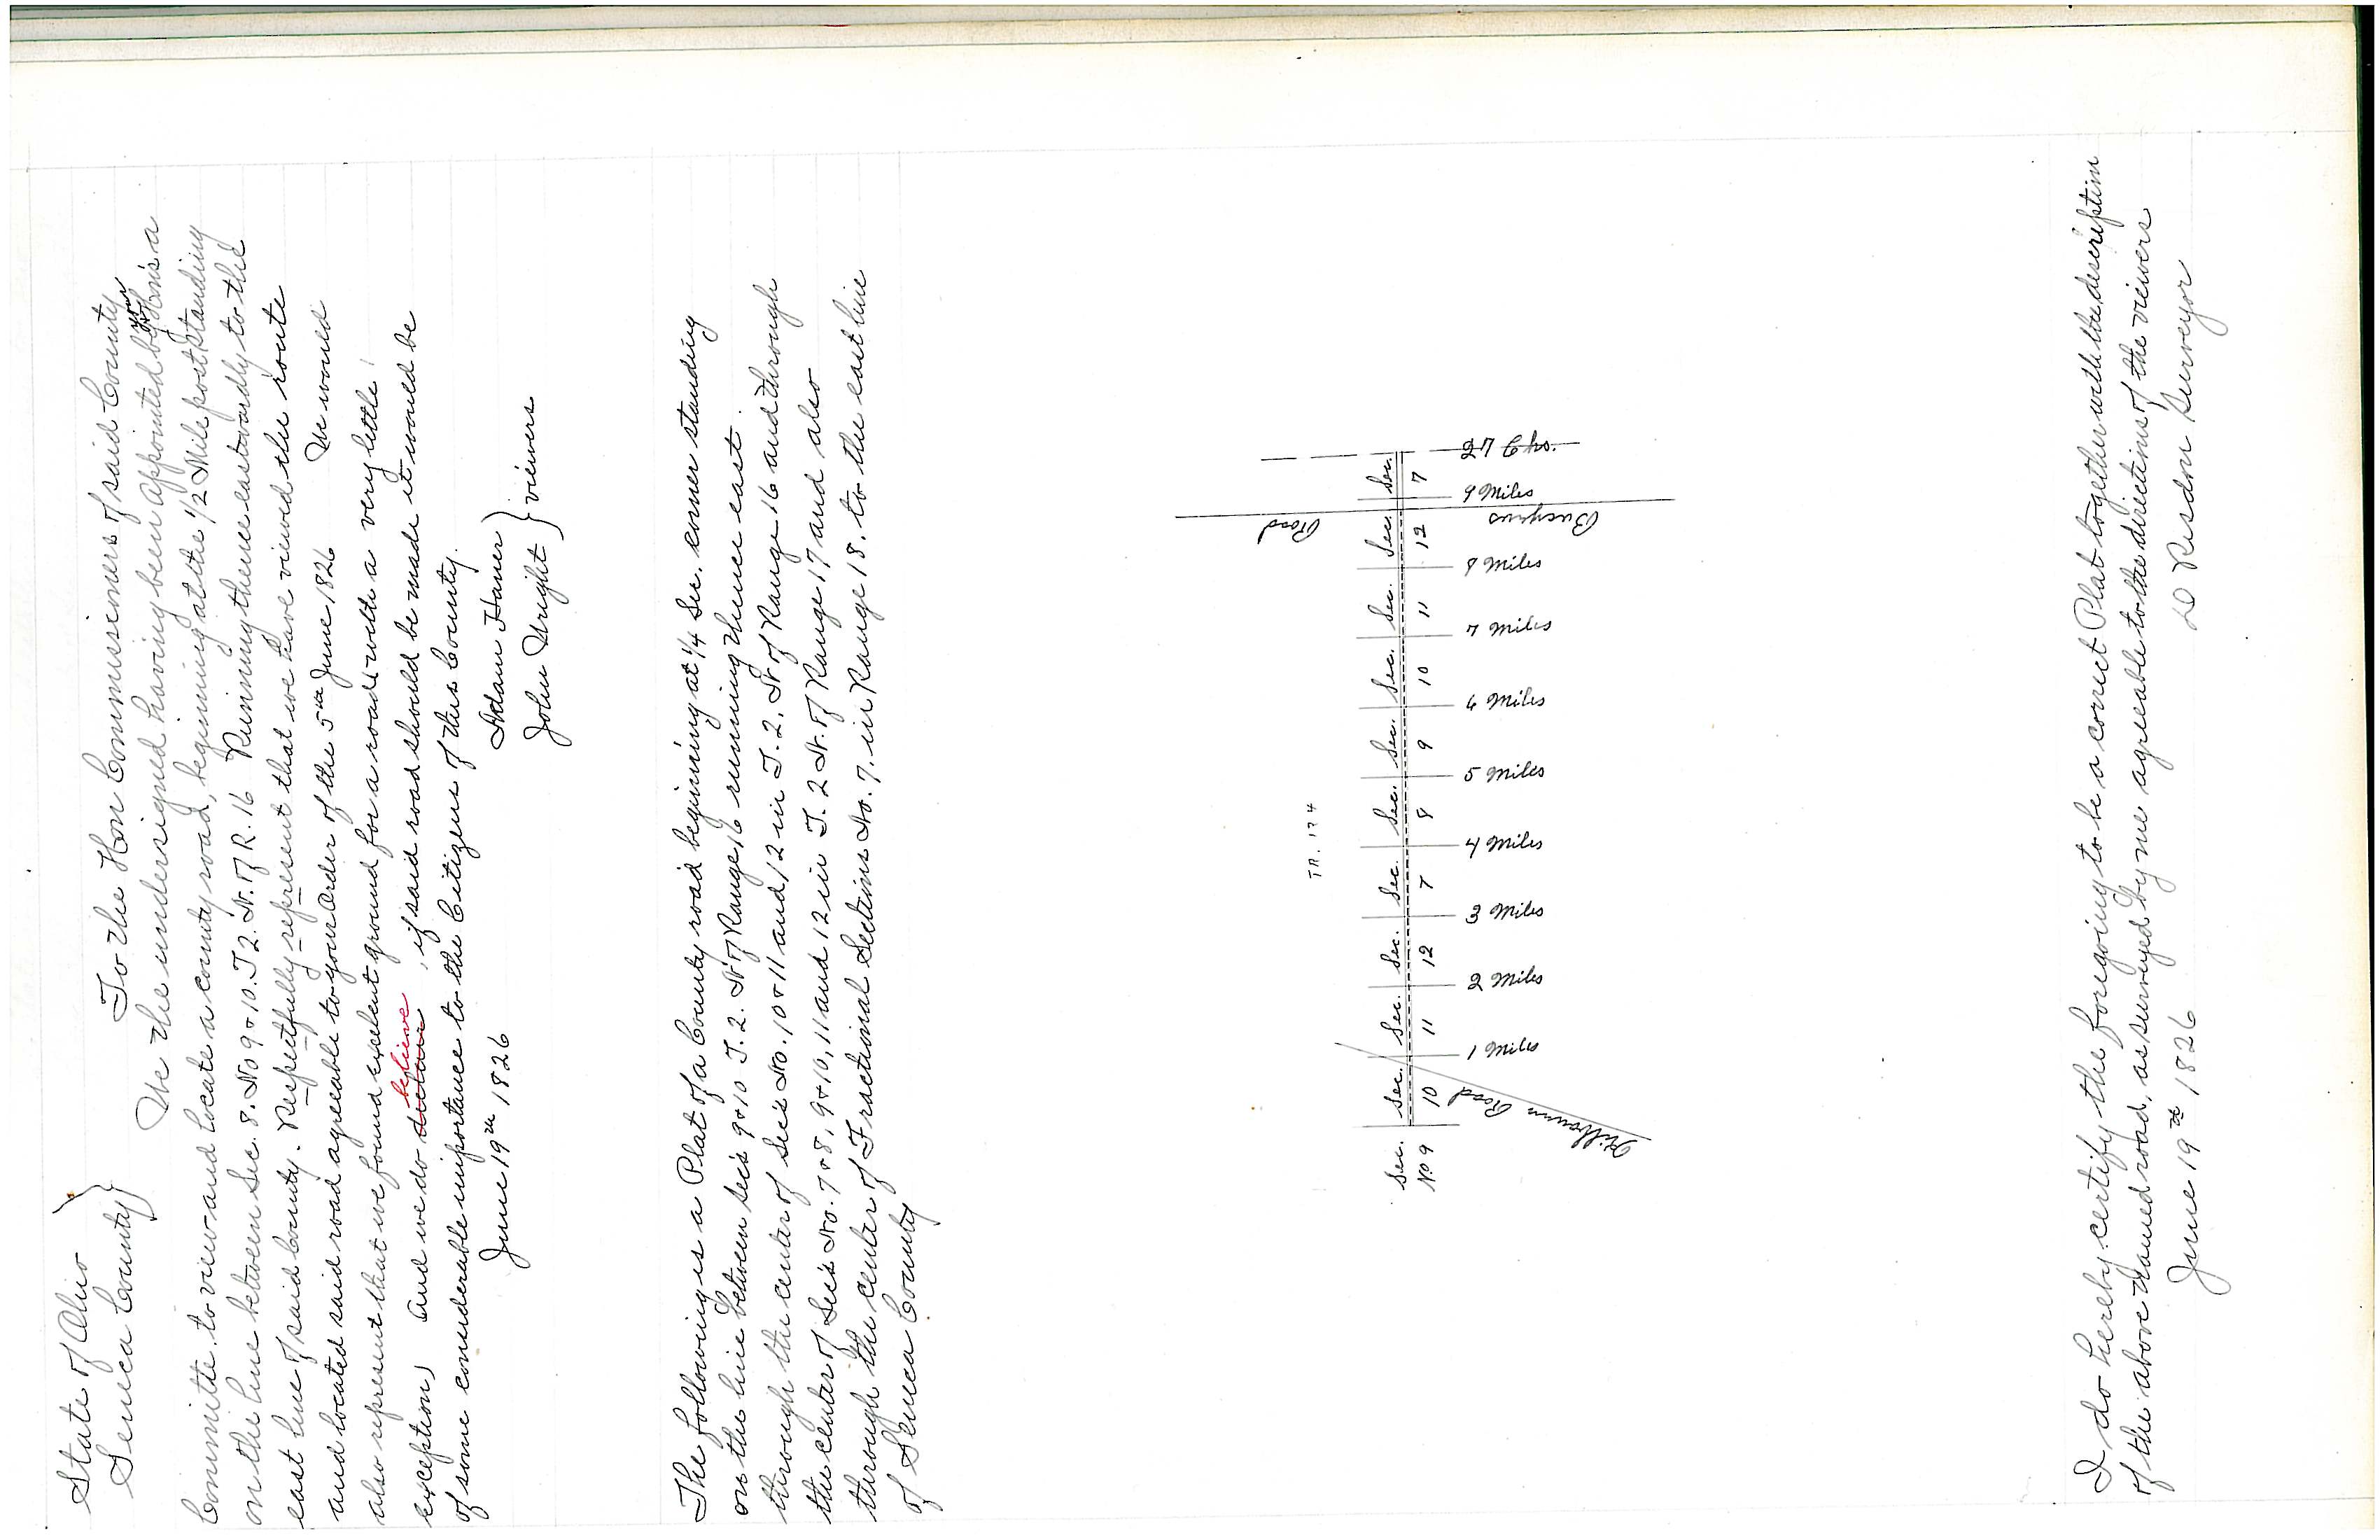 State of Ohio }
Seneca County }
To the Hon Commissioners of said County
We the undersigned having been appointed by your Hon's a
Committe to view and locate a county road, beginning at the 1/2 Mile post standing
on the line between Sec. 8. No 9 & 10. T 2. N. of R. 16 Running thence eastwardly to the
east line of said County. Respectfully represent that we have viewed the route
and located said road agreeable to your order of the 5th June 1826 We would
also represent that we found exelent ground for a road (with a very little
exception) and we do declare believe, if said road should be made it would be
of some considerable importance to the Citizens of this County.
June 19th 1826 Adam Haner }
John Wright } viewers
The following is a Plat of a County road beginning at 1/4 Sec. corner standing
on the line between Sec's 9 & 10 T. 2. N of Range 16 running thence east
through the center of Sec's No. 10 & 11 and 12 in T. 2. N of Range 16 and through
the center of Sec's No. 7 & 8, 9 & 10, 11 and 12 in T. 2 N. of Range 17 and also
through the center of Fractional Sections No. 7, in Range 18. to the east line
of Seneca County
TR. 174
Sec. Sec. Sec. Sec. Sec. Sec. Sec. Sec. Sec. Sec. Sec.
No 9 10 11 12 7 8 9 10 11 12 7
1 Miles 2 Miles 3 Miles 4 Miles 5 Miles 6 Miles 7 Miles 8 Miles 9 Miles
Kilbourn Road
Bucyrus Road
I do hereby certify the foregoing to be a correct Plat together with the description
of the above named road, as surveyed by me agreeable to the directions of the viewers
June 19th 1826 D Risdon Surveyor